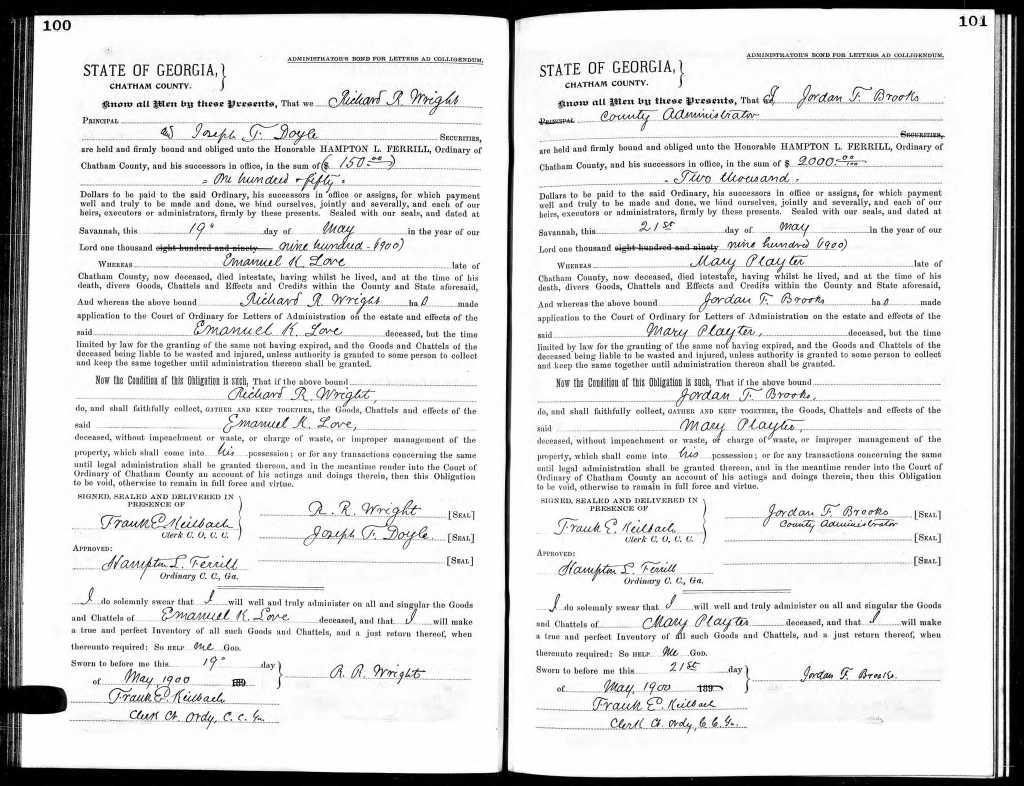 100
ADMINISTRATOR'S BOND FOR LETTERS AD COLLIGENDUM.
STATE OF GEORGIA, }
CHATHAM COUNTY.
Know all Men by these Presents, That we Richard R. Wright
PRINCIPAL
and Joseph F. Doyle SECURITIES,
are held and firmly bound and obliged unto the Honorable HAMPTON L. FERRILL, Ordinary of
Chatham County, and his successors in office, in the sum of ($ 150.00)
One hundred & fifty
Dollars to be paid to the said Ordinary, his successors in office or assigns, for which payment
well and truly to be made and done, we bind ourselves, jointly and severally, and each of our
heirs, executors or administrators, firmly by these presents. Sealed with our seals, and dated at
Savannah, this 19" day of May in the year of our
Lord one thousand eight hundred and ninety nine hundred - (1900)
WHEREAS Emanuel K. Love late of
Chatham County, now deceased, died intestate, having whilst he lived, and at the time of his
death, divers Goods, Chattels and Effects and Credits within the County and State aforesaid,
And whereas the above bound Richard R. Wright has made
application to the Court of Ordinary for Letters of Administration on the estate and effects of the
said Emanuel K. Love deceased, but the time
limited by law for the granting of the same not having expired, and the Goods and Chattels of the
deceased being liable to be wasted and injured, unless authority is granted to some person to collect
and keep the same together until administration thereon shall be granted.
Now the Condition of this Obligation is such, That if the above bound
Richard R. Wright,
do, and shall faithfully collect, GATHER AND KEEP TOGETHER, the Goods, Chattels and effects of the
said Emanuel K. Love,
deceased, without impeachment or waste, or charge of waste, or improper management of the
property, which shall come into his possession; or for any transactions concerning the same
until legal administration shall be granted thereon, and in the meantime render into the Court of
Ordinary of Chatham County an account of his actings and doings therein, then this Obligation
to be void, otherwise to remain in full force and virtue.
SIGNED, SEALED AND DELIVERED IN
PRESENCE OF
R. R. Wright [SEAL]
Frank E. Keilbach
Clerk C. O. C. C.
Joseph F. Doyle. [SEAL]
APPROVED:
[SEAL]
Hampton L. Ferrill
Ordinary C. C., Ga.
I do solemnly swear that I will well and truly administer on all and singular the Goods
and Chattels of Emanuel K. Love deceased, and that I will make
a true and perfect Inventory of all such Goods and Chattels, and a just return thereof, when
thereunto required: SO HELP me GOD.
Sworn to before me this 19" day
of May 1900 189
R. R. Wright
Frank E. Keilbach
Clerk Ct. Ordy, C. C. Ga.
101
ADMINISTRATOR'S BOND FOR LETTERS AD COLLIGENDUM.
STATE OF GEORGIA, }
CHATHAM COUNTY.
Know all Men by these Presents, That we, I Jordan F. Brooks
PRINCIPAL County Administrator
SECURITIES,
are held and firmly bound and obliged unto the Honorable HAMPTON L. FERRILL, Ordinary of
Chatham County, and his successors in office, in the sum of $ 2000.00/100
Two thousand
Dollars to be paid to the said Ordinary, his successors in office or assigns, for which payment
well and truly to be made and done, we bind ourselves, jointly and severally, and each of our
heirs, executors or administrators, firmly by these presents. Sealed with our seals, and dated at
Savannah, this 21st day of May in the year of our
Lord one thousand eight hundred and ninety nine hundred (1900)
WHEREAS Mary Playter late of
Chatham County, now deceased, died intestate, having whilst he lived, and at the time of his
death, divers Goods, Chattels and Effects and Credits within the County and State aforesaid,
And whereas the above bound Jordan F. Brooks has made
application to the Court of Ordinary for Letters of Administration on the estate and effects of the
said Mary Playter, deceased, but the time
limited by law for the granting of the same not having expired, and the Goods and Chattels of the
deceased being liable to be wasted and injured, unless authority is granted to some person to collect
and keep the same together until administration thereon shall be granted.
Now the Condition of this Obligation is such, That if the above bound
Jordan F. Brooks,
do, and shall faithfully collect, GATHER AND KEEP TOGETHER, the Goods, Chattels and effects of the
said Mary Playter,
deceased, without impeachment or waste, or charge of waste, or improper management of the
property, which shall come into his possession; or for any transactions concerning the same
until legal administration shall be granted thereon, and in the meantime render into the Court of
Ordinary of Chatham County an account of his actings and doings therein, then this Obligation
to be void, otherwise to remain in full force and virtue.
SIGNED, SEALED AND DELIVERED IN
PRESENCE OF
Jordan F. Brooks [SEAL]
County Administrator
Frank E. Keilbach
Clerk C. O. C. C.
[SEAL]
APPROVED:
[SEAL]
Hampton L. Ferrill
Ordinary C. C., Ga.
I do solemnly swear that I will well and truly administer on all and singular the Goods
and Chattels of Mary Playter deceased, and that I will make
a true and perfect Inventory of all such Goods and Chattels, and a just return thereof, when
thereunto required: SO HELP me GOD.
Sworn to before me this 21st day
of May, 1900 189
Jordan F. Brooks.
Frank E. Keilbach
Clerk Ct. Ordy, C. C. Ga.